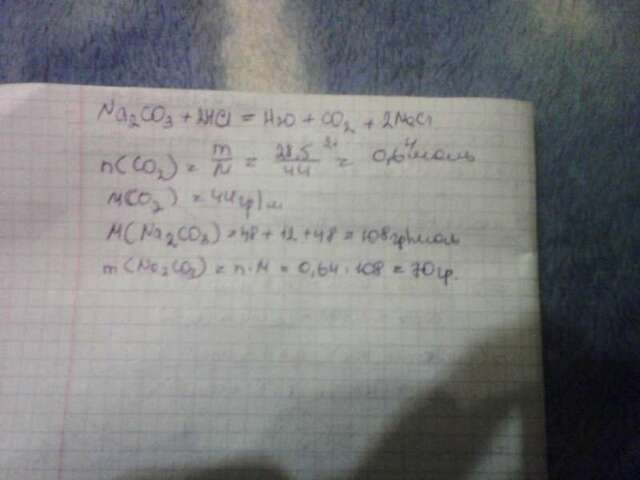 Na₂CO₃ + 2HCl = H₂O + CO₂ + 2NaCl
n(CO₂) = m/M = 28,5 г/44 = 0,64 моль
M(CO₂) = 44 гр/м
M(Na₂CO₃) = 48 + 12 + 48 = 108 гр/моль
m(Na₂CO₂) = n · M = 0,64 · 108 = 70 гр.